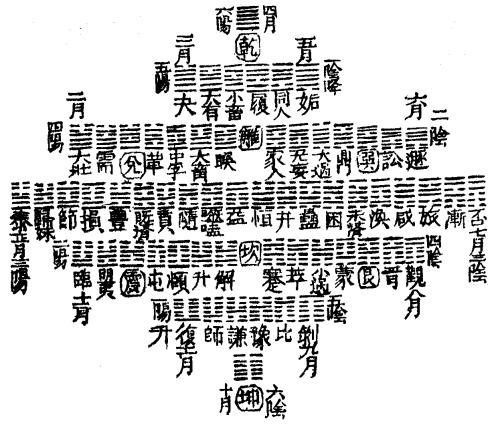 六陽 四月
乾
三月 五月
五陽
夬 大有 小畜 履 同人 姤
二月 六月
四陽 二陰
大壯 需 兌 革 中孚 大畜 睽 離 家人 无妄 大過 鼎 巽 訟 遯
泰 歸妹 節 損 豐 既濟 賁 隨 噬嗑 益 恒 井 蠱 困 未濟 渙 咸 旅 漸 否
正月三陽 七月三陰
二陽 四陰
臨 明夷 震 屯 頤 升 解 坎 蹇 萃 小過 蒙 艮 晉 觀
十二月 八月
陽升 五陰
復 師 謙 豫 比 剝
十一月 九月
十月 坤 六陰